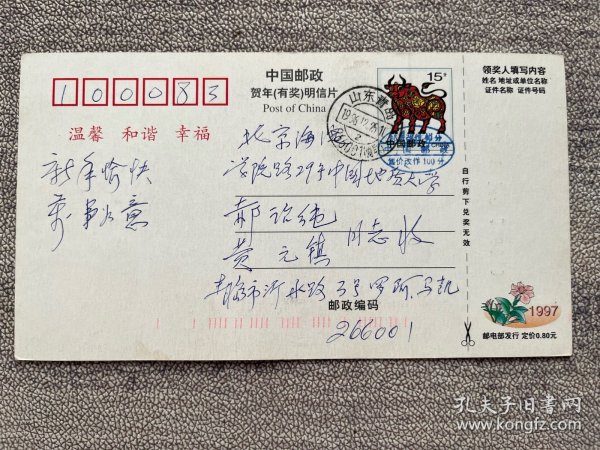 中国邮政
贺年(有奖)明信片
Post of China
15分
中国邮政
售价改作100分
山东青岛
领奖人填写内容
姓名 地址或单位名称
证件名称 证件号码
100083
温馨 和谐 幸福
新年愉快
万事如意
北京海
学院路29号中国地质大学
郝诒纯
黄元镇 同志收
青岛市沂水路3号 马凯
邮政编码
266001
自行剪下兑奖无效
1997
邮电部发行 定价0.80元
孔夫子旧书网
www.kongfz.com